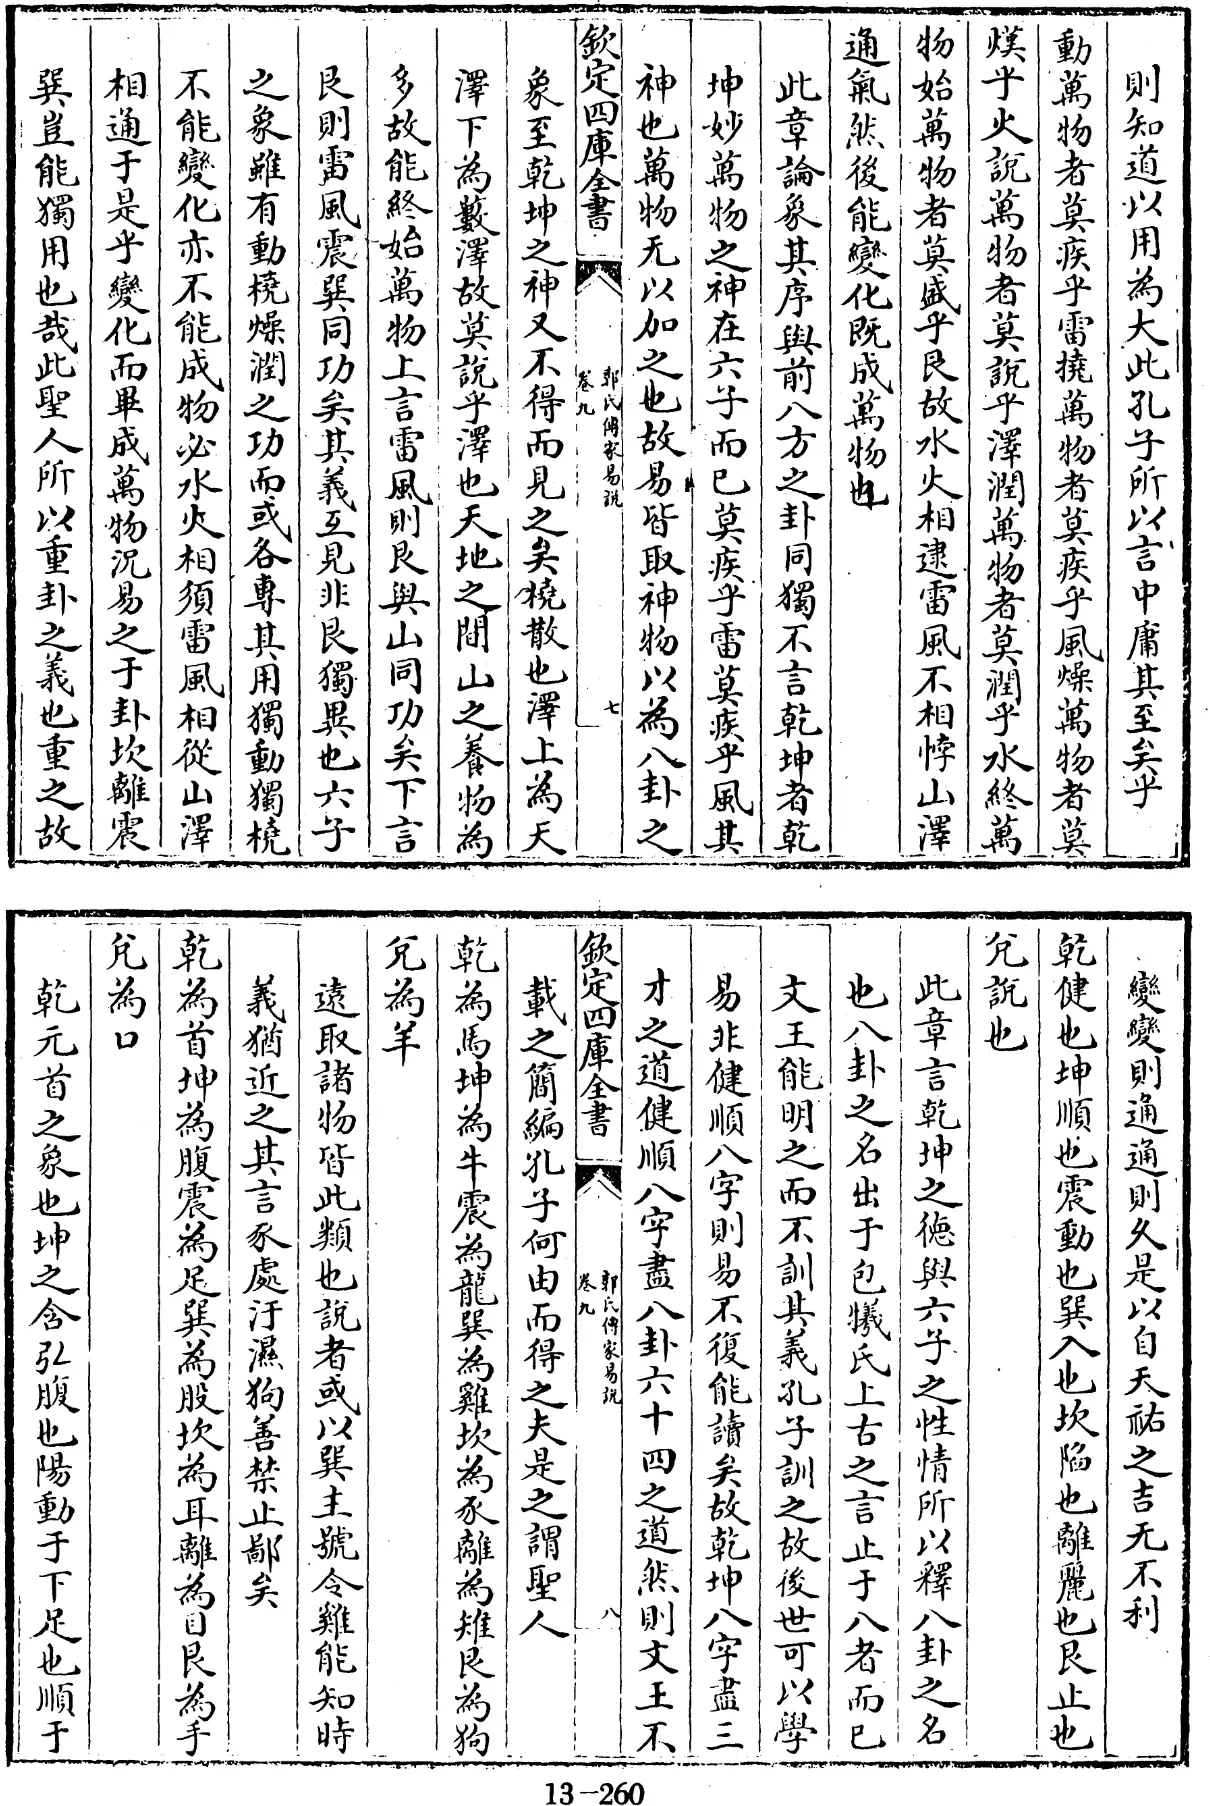 則知道以用為大此孔子所以言中庸其至矣乎
動萬物者莫疾乎雷撓萬物者莫疾乎風燥萬物者莫
熯乎火說萬物者莫說乎澤潤萬物者莫潤乎水終萬
物始萬物者莫盛乎艮故水火相逮雷風不相悖山澤
通氣然後能變化既成萬物也
此章論象其序與前八方之卦同獨不言乾坤者乾
坤妙萬物之神在六子而已莫疾乎雷莫疾乎風其
神也萬物无以加之也故易皆取神物以為八卦之
欽定四庫全書
郭氏傳家易說
卷九
七
象至乾坤之神又不得而見之矣橈散也澤上為天
澤下為藪澤故莫說乎澤也天地之間山之養物為
多故能終始萬物上言雷風則艮與山同功矣下言
艮則雷風震巽同功矣其義互見非艮獨異也六子
之象雖有動橈燥潤之功而或各專其用獨動獨橈
不能變化亦不能成物必水火相須雷風相從山澤
相通于是乎變化而畢成萬物況易之于卦坎離震
巽豈能獨用也哉此聖人所以重卦之義也重之故
變變則通通則久是以自天祐之吉无不利
乾健也坤順也震動也巽入也坎陷也離麗也艮止也
兌說也
此章言乾坤之德與六子之性情所以釋八卦之名
也八卦之名出于包犧氏上古之言止于八者而已
文王能明之而不訓其義孔子訓之故後世可以學
易非健順八字則易不復能讀矣故乾坤八字盡三
才之道健順八字盡八卦六十四之道然則文王不
欽定四庫全書
郭氏傳家易說
卷九
八
載之簡編孔子何由而得之夫是之謂聖人
乾為馬坤為牛震為龍巽為雞坎為豕離為雉艮為狗
兌為羊
遠取諸物皆此類也說者或以巽主號令雞能知時
義猶近之其言豕處汙濕狗善禁止鄙矣
乾為首坤為腹震為足巽為股坎為耳離為目艮為手
兌為口
乾元首之象也坤之含弘腹也陽動于下足也順于
13-260